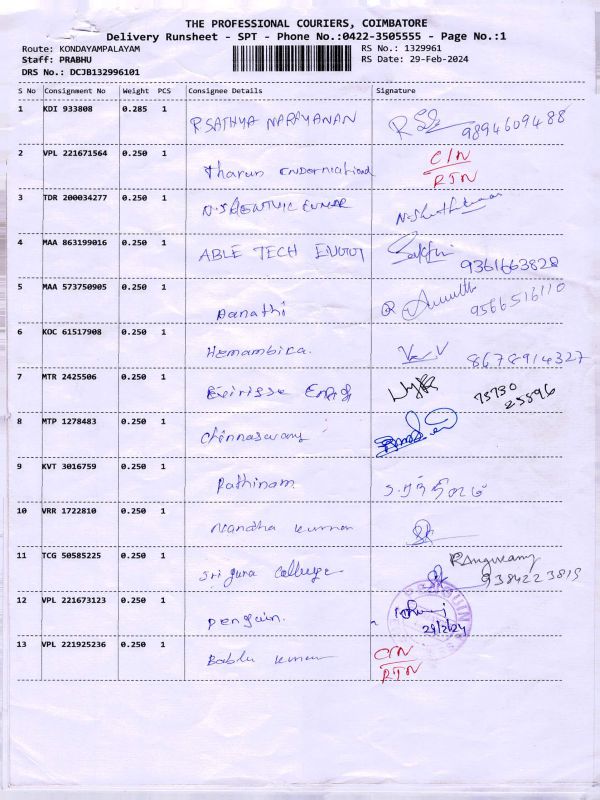 THE PROFESSIONAL COURIERS, COIMBATORE
Delivery Runsheet - SPT - Phone No.:0422-3505555 - Page No.:1
Route: KONDAYAMPALAYAM
RS No.: 1329961
Staff: PRABHU
RS Date: 29-Feb-2024
DRS No.: DCJB132996101
S No Consignment No Weight PCS Consignee Details Signature
1 KDI 933808 0.285 1 P SATHYA NARAYANAN 9894609488
2 VPL 221671564 0.250 1 Tharun C/N
RTN
3 TDR 200034277 0.250 1
4 MAA 863199016 0.250 1 ABLE TECH Sakthi 9361663828
5 MAA 573750905 0.250 1 9566516110
6 KOC 61517908 0.250 1 Hemambica. 8678914327
7 MTR 2425506 0.250 1 75730
25896
8 MTP 1278483 0.250 1 Chinnaswamy
9 KVT 3016759 0.250 1 Rathinam
10 VRR 1722810 0.250 1 Nandha kumar
11 TCG 50585225 0.250 1 Sri guru College 9384223815
12 VPL 221673123 0.250 1 penguin. 29/2/24
13 VPL 221925236 0.250 1 Bablu kumar C/N
RTN